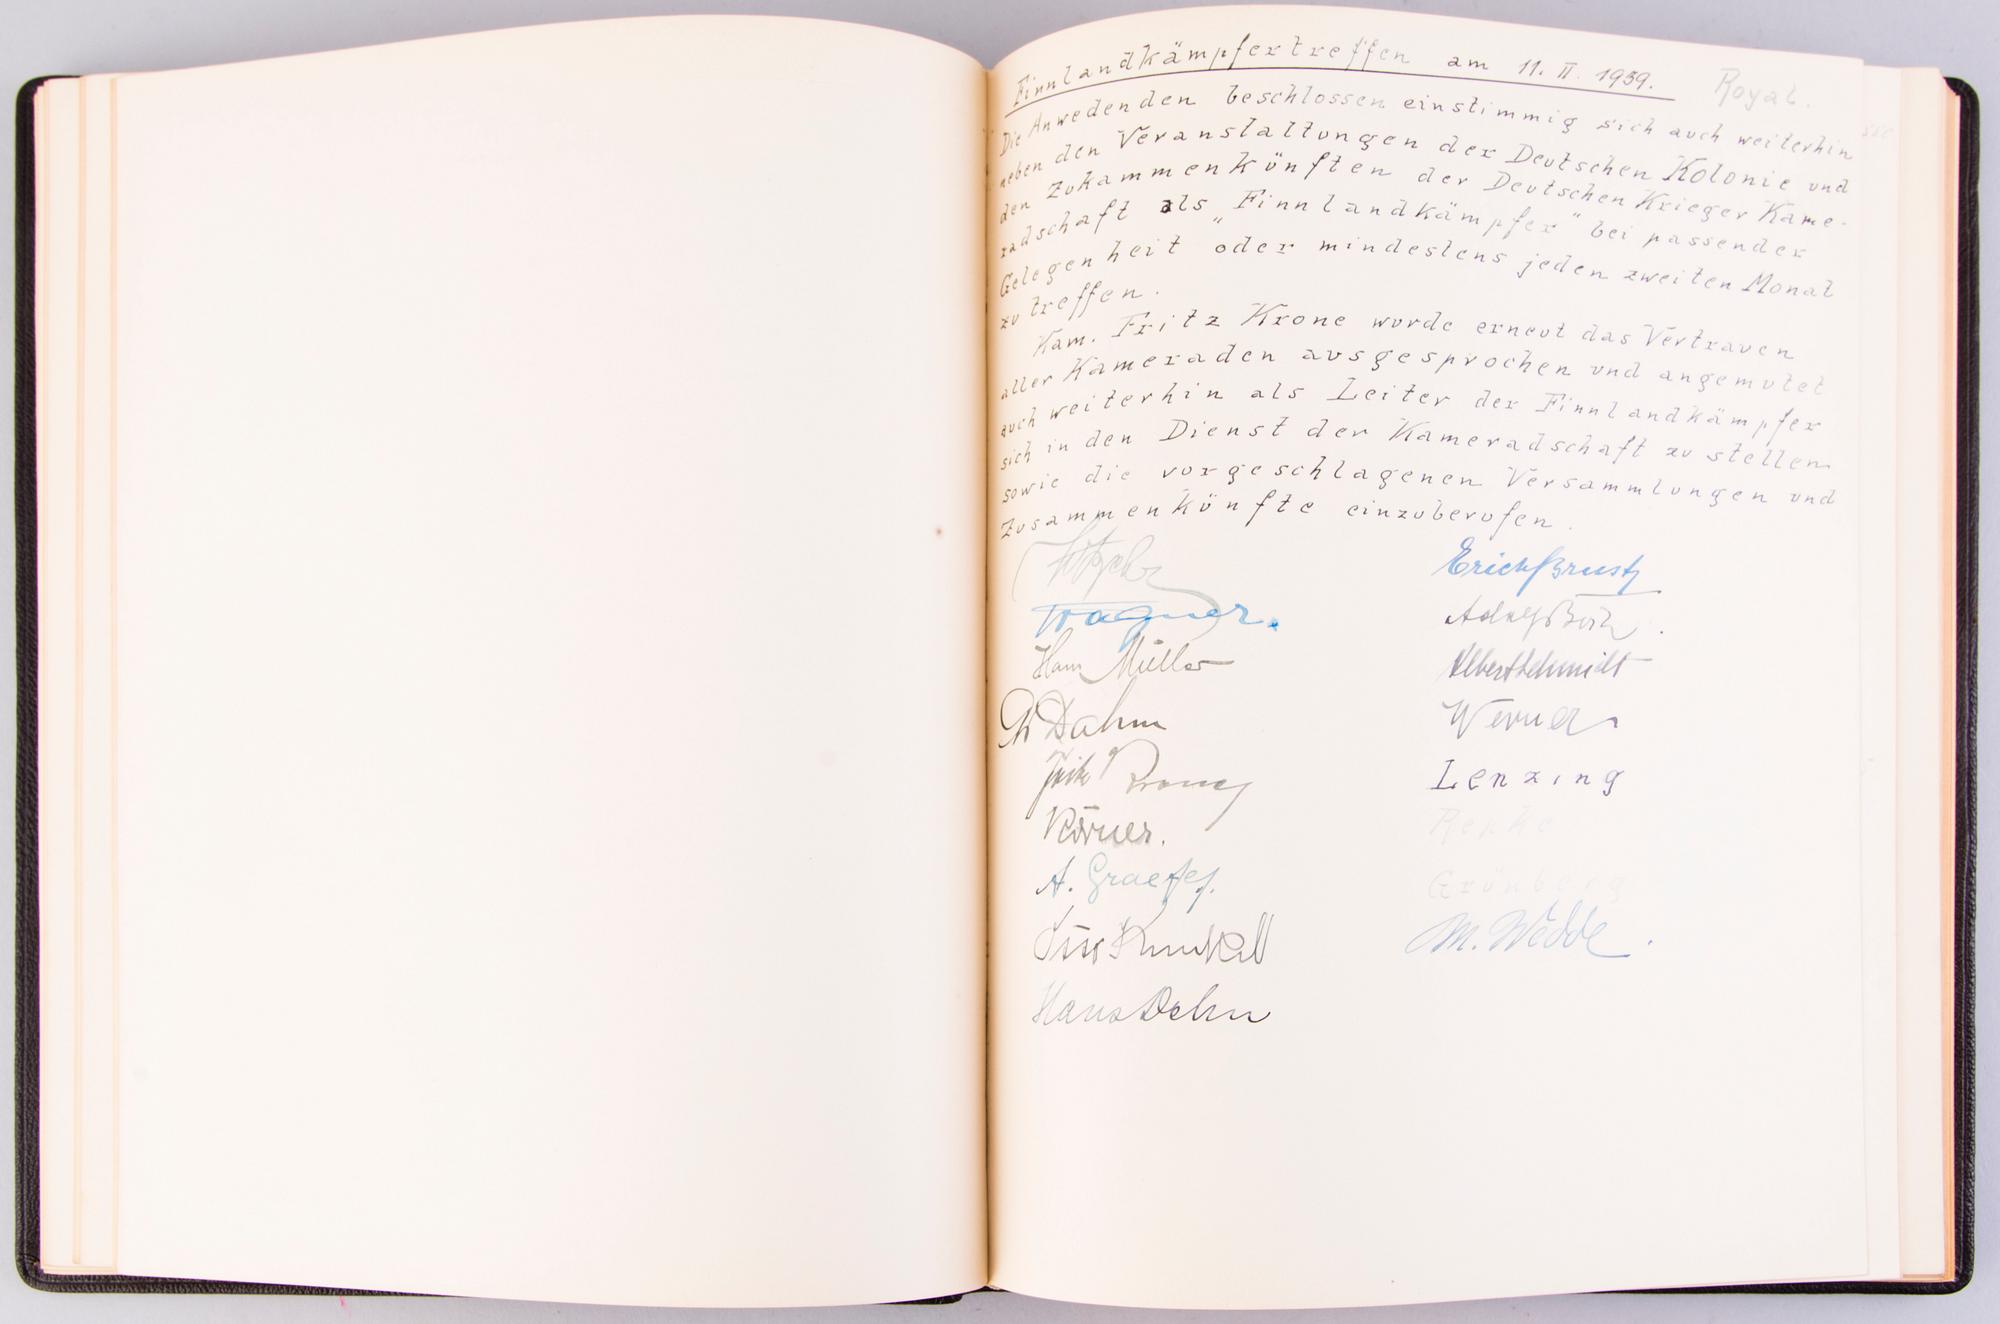 Finnlandkämpfertreffen am 11. II. 1939. Royal.
Die Anwedenden beschlossen einstimmig sich auch weiterhin
neben den Veranstaltungen der Deutschen Kolonie und
den Zukammenkünften der Deutschen Krieger Kame-
radschaft als „Finnlandkämpfer" bei passender
Gelegenheit oder mindestens jeden zweiten Monat
zu treffen.
Kam. Fritz Krone wurde erneut das Vertrauen
aller Kameraden ausgesprochen und angemutet
auch weiterhin als Leiter der Finnlandkämpfer
sich in den Dienst der Kameradschaft zu stellen
sowie die vorgeschlagenen Versammlungen und
Zusammenkünfte einzuberufen.
Erich Brust
Wagner.
Adolf
Hans Müller
Albert Schmidt
Dahm
Werner
Fritz Krone
Lenzing
Körner.
Repke
A. Graefe
Grönberg
Otto Kunkel
M. Wedde.
Hans Dehn